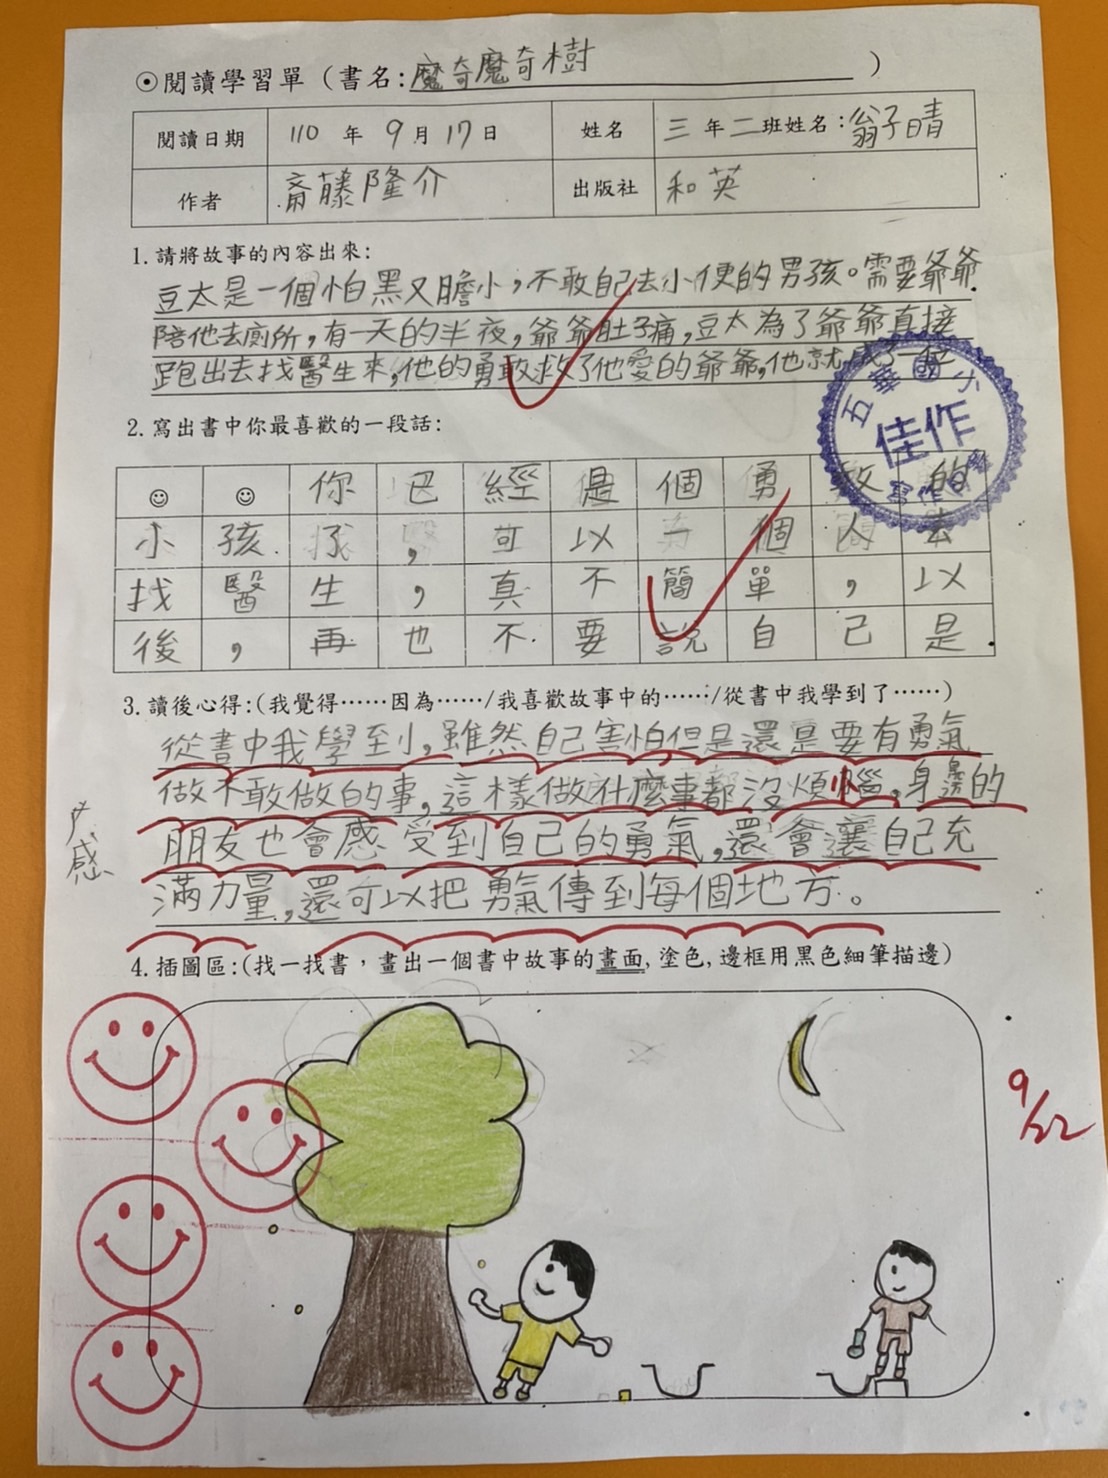 ⊙閱讀學習單（書名:魔奇魔奇樹）
閱讀日期 110 年 9月 17日 姓名 三 年 二 班姓名:翁子晴
作者 斎藤隆介 出版社 和英
1.請將故事的內容出來:
豆太是一個怕黑又膽小，不敢自己去小便的男孩。需要爺爺
陪他去廁所，有一天的半夜，爺爺肚子痛，豆太為了爺爺直接
跑出去找醫生來，他的勇敢救了他愛的爺爺，他就成了一位
五華國小
佳作
2.寫出書中你最喜歡的一段話:
☺☺你已經是個勇敢的
小孩了，可以一個人去
找醫生，真不簡單，以
後，再也不要說自己是
3.讀後心得:(我覺得……因為……/我喜歡故事中的……/從書中我學到了……)
從書中我學到小，雖然自己害怕但是還是要有勇氣
做不敢做的事，這樣做什麼事都沒煩惱，身邊的
朋友也會感受到自己的勇氣，還會讓自己充
滿力量，還可以把勇氣傳到每個地方。
感
4.插圖區:(找一找書，畫出一個書中故事的畫面,塗色,邊框用黑色細筆描邊)
9/22